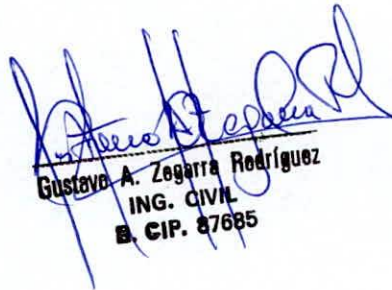 Gustavo A. Zegarra Rodríguez
ING. CIVIL
R. CIP. 87685